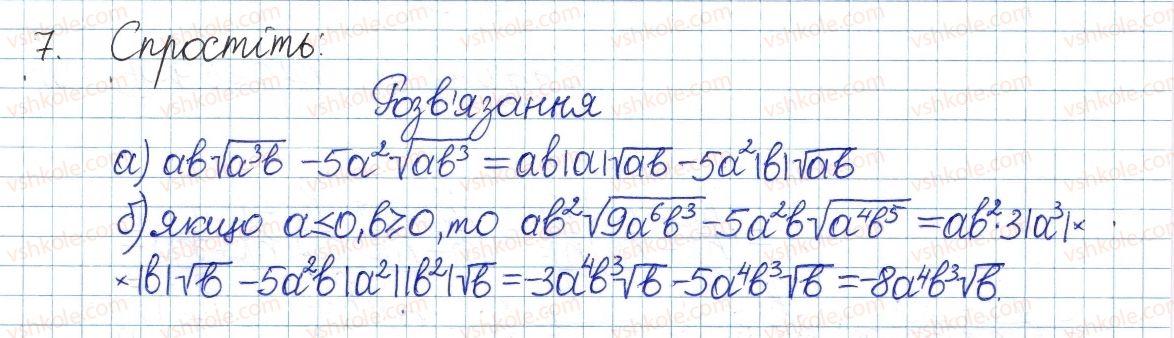 7. Спростіть:
Розв'язання
а) ab√(a³b) - 5a²√(ab³) = ab|a|√(ab) - 5a²|b|√(ab)
б) якщо a≤0, b≥0, то ab²√(9a⁶b³) - 5a²b√(a⁴b⁵) = ab²·3|a³|×
×|b|√b - 5a²b|a²||b²|√b = -3a⁴b³√b - 5a⁴b³√b = -8a⁴b³√b.